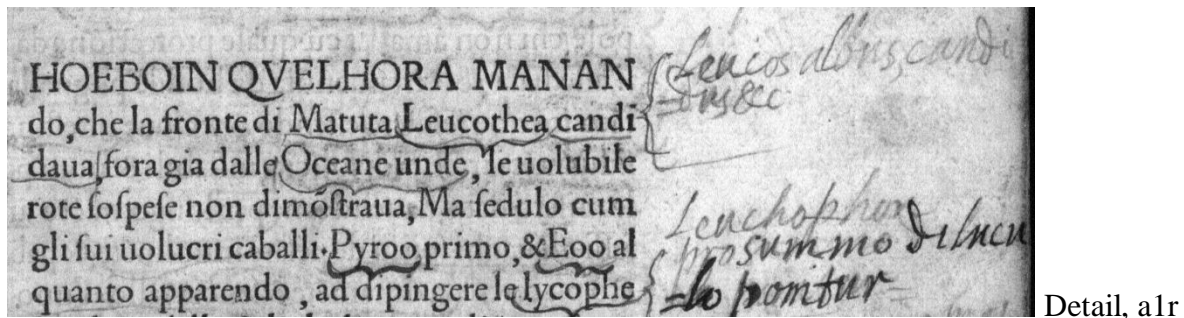 HOEBOIN QVELHORA MANAN
do,che la fronte di Matuta Leucothea candi
daua,fora gia dalle Oceane unde, le uolubile
rote ſoſpeſe non dimõſtraua,Ma ſedulo cum
gli ſui uolucri caballi.Pyroo primo,&Eoo al
quanto apparendo, ad dipingere le lycophe
Leucos albus, candi
=dus &c
Leuchophon
pro summo dilucu
=lo ponitur
Detail, a1r